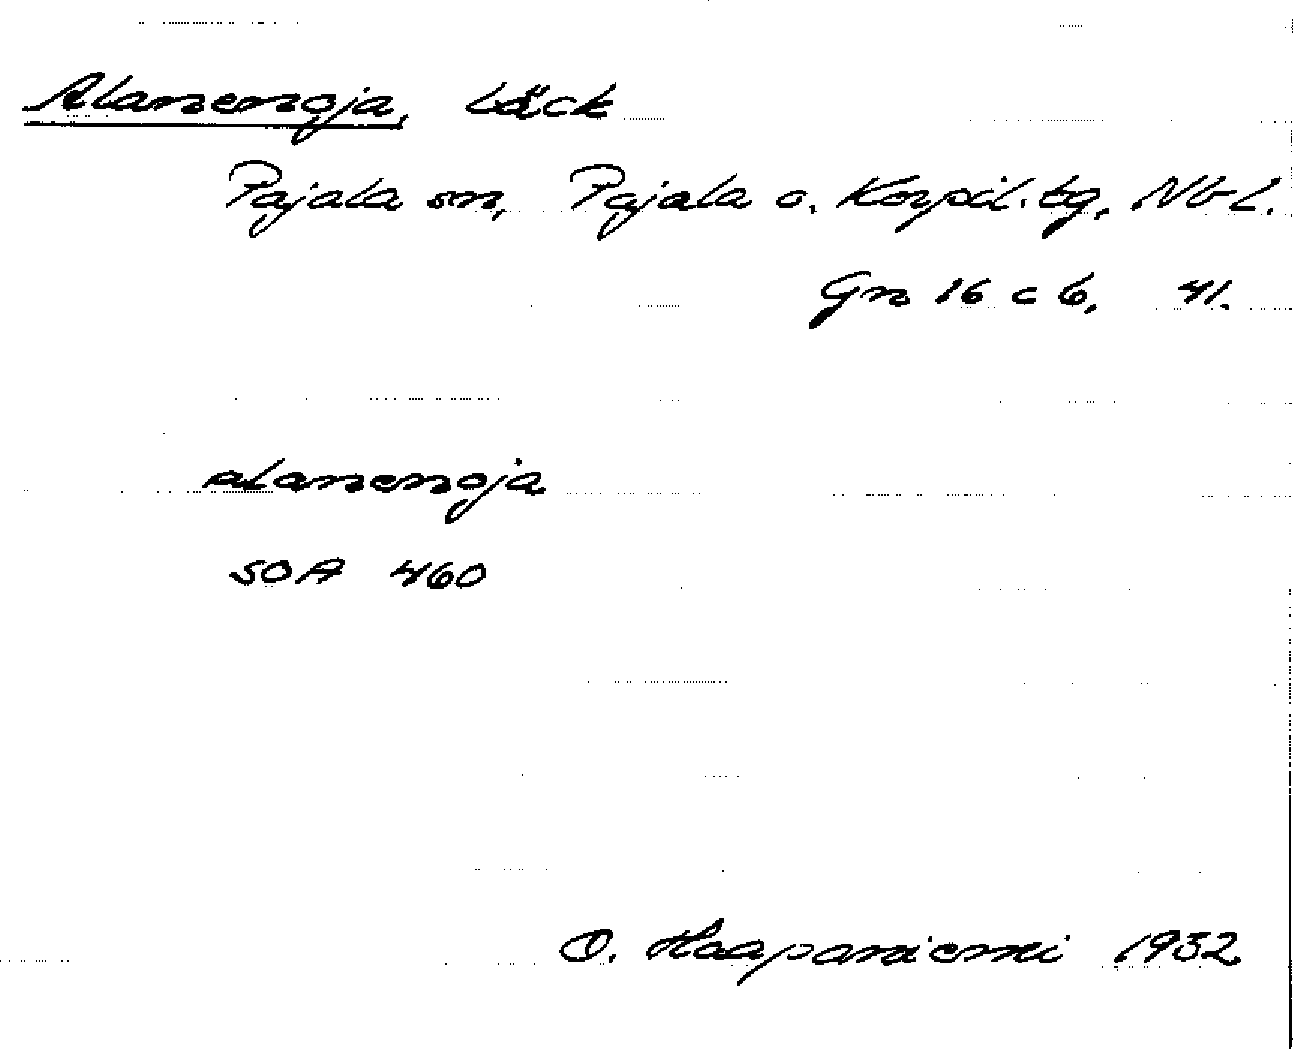 Alanenoja, bäck
Pajala sn, Pajala o. Korpil. tg, Nb l.
Gn 16 c b, 41.
alanenoja
SOA 460
O. Haapaniemi 1932